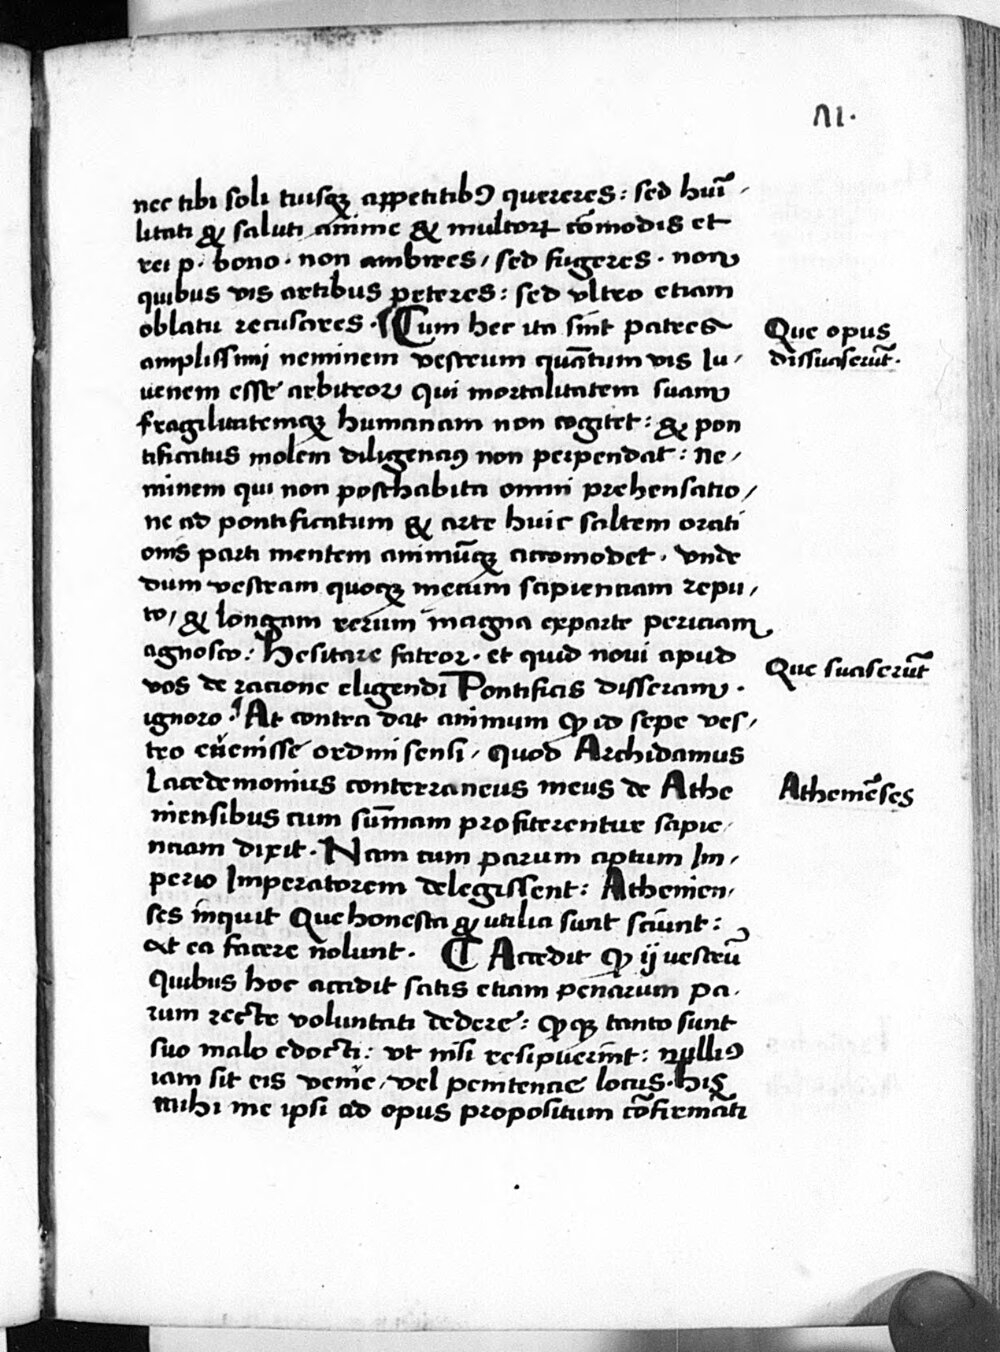 VI.
nec tibi soli tuisqꝫ appetitibꝰ quereres: sed huī-
litati & saluti anime & multoꝝ cōmodis et
rei p. bono. non ambires, sed fugeres. non
quibus vis artibus peteres: sed vltro etiam
oblatū recusares. Cum hec ita sint patres
Que opus
dissuaserūt.
amplissimi neminem vestrum quātum vis Iu-
uenem esse arbitror Qui mortalitatem suam
fragilitatemqꝫ humanam non cogitet: & pon
tificatus molem diligenciꝰ non perpendat: Ne-
minem qui non posthabita omni prehensatio-
ne ad pontificatum & arte huic saltem orati
onis parti mentem animūqꝫ accomodet. vnde
dum vestram quoqꝫ mecum sapienciam repu-
to, & longam rerum magna exparte periciam
agnosco: Hesitare fateor. et quid noui apud
vos de racione eligendi Pontificis disseram.
Que suaserūt
ignoro. At contra dat animum ꝙ id sepe ves-
tro euenisse ordini sensi, quod Archidamus
Lacedemonius conterraneus meus de Athe
Athemēses
niensibus cum sūmam profiterentur sapie-
nciam dixit. Nam cum parum aptum Im-
perio Imperatorem delegissent: Athenien-
ses inquit Que honesta & utilia sunt sciunt:
at ea facere nolunt. Accedit ꝙ ij vestrū
Quibus hoc accidit satis etiam penarum pa-
rum recte voluntati dedere: ꝙqꝫ tanto sunt
suo malo edocti: vt nisi resipuerint: nullꝰ
iam sit eis venie, vel penitencie locus. his
mihi me ipsi ad opus propositum cōfirmāti